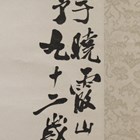 子曉霞山
九十二歲